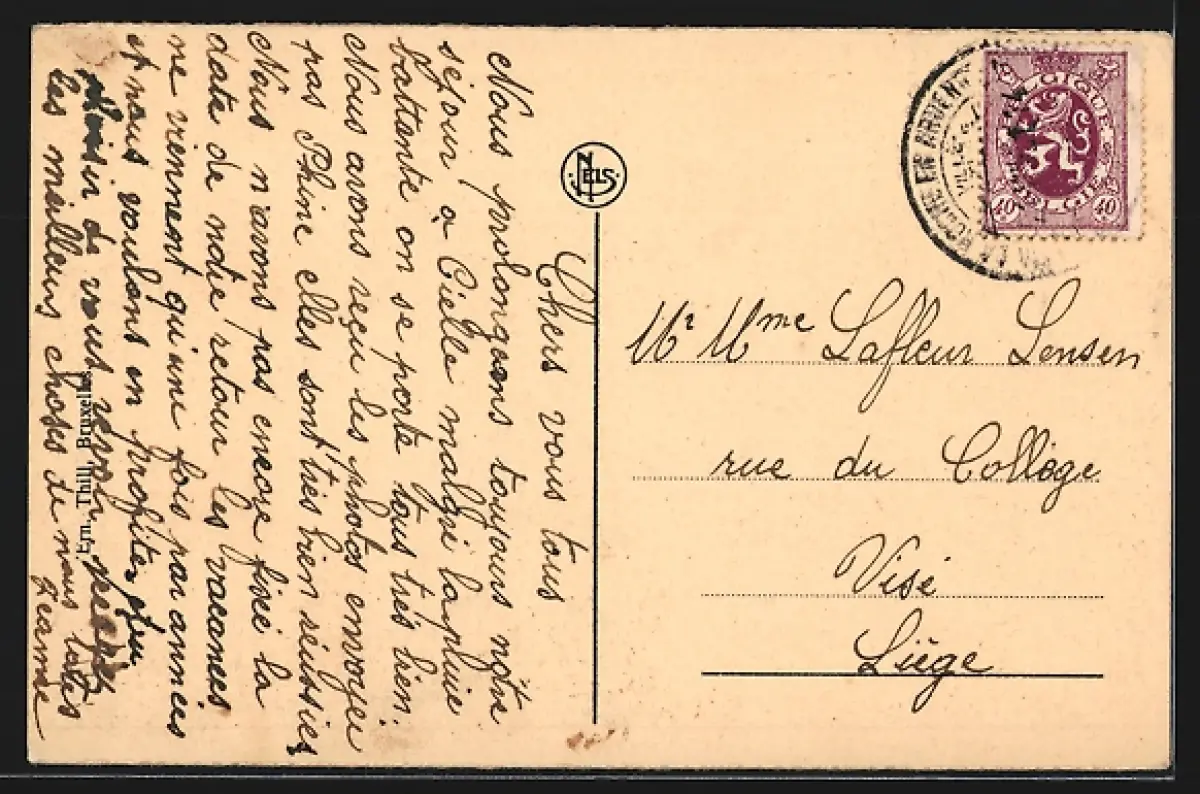 Chers vous tous
Nous prolongeons toujours nôtre
séjour à Cielle malgré la pluie
battante on se porte tous très bien.
Nous avons reçu les photos envoyeu
pas Phine elles sont très bien réussies
Nous n'avons pas encore fixée la
date de notre retour les vacances
ne viennent qu'une fois par années
et nous voulons en profiter
plaisir de vous revoir
les meilleurs choses de nous tous
Jeanne
Ern. Thill, Bruxelles
NELS
BELGIQUE
BELGIE
40 40
LA ROCHE EN ARDENNE
VILLE
Mr Mme Lafleur Lensen
rue du Collège
Visé
Liège